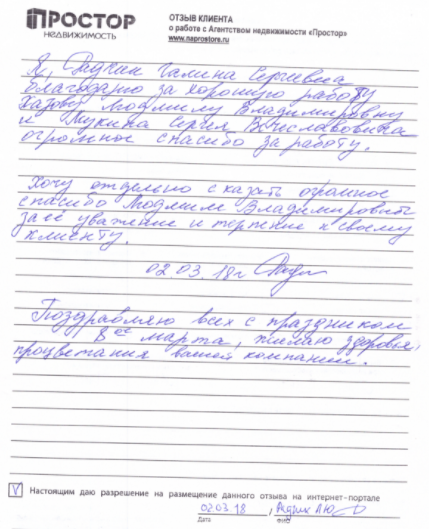 ПРОСТОР
НЕДВИЖИМОСТЬ
ОТЗЫВ КЛИЕНТА
о работе с Агентством недвижимости «Простор»
www.naprostore.ru
Я, Галина Сергеевна
благодарю за хорошую работу
Людмилу Владимировну
и Сергея Вячеславовича
огромное спасибо за работу.
Хочу отдельно сказать огромное
спасибо Людмиле Владимировне
за её уважение и терпение к своему
клиенту.
02.03.18г
Поздравляю всех с праздником
8ое марта, желаю здоровья,
процветания вашей компании.
V Настоящим даю разрешение на размещение данного отзыва на интернет-портале
02.03.18 /
Дата ФИО